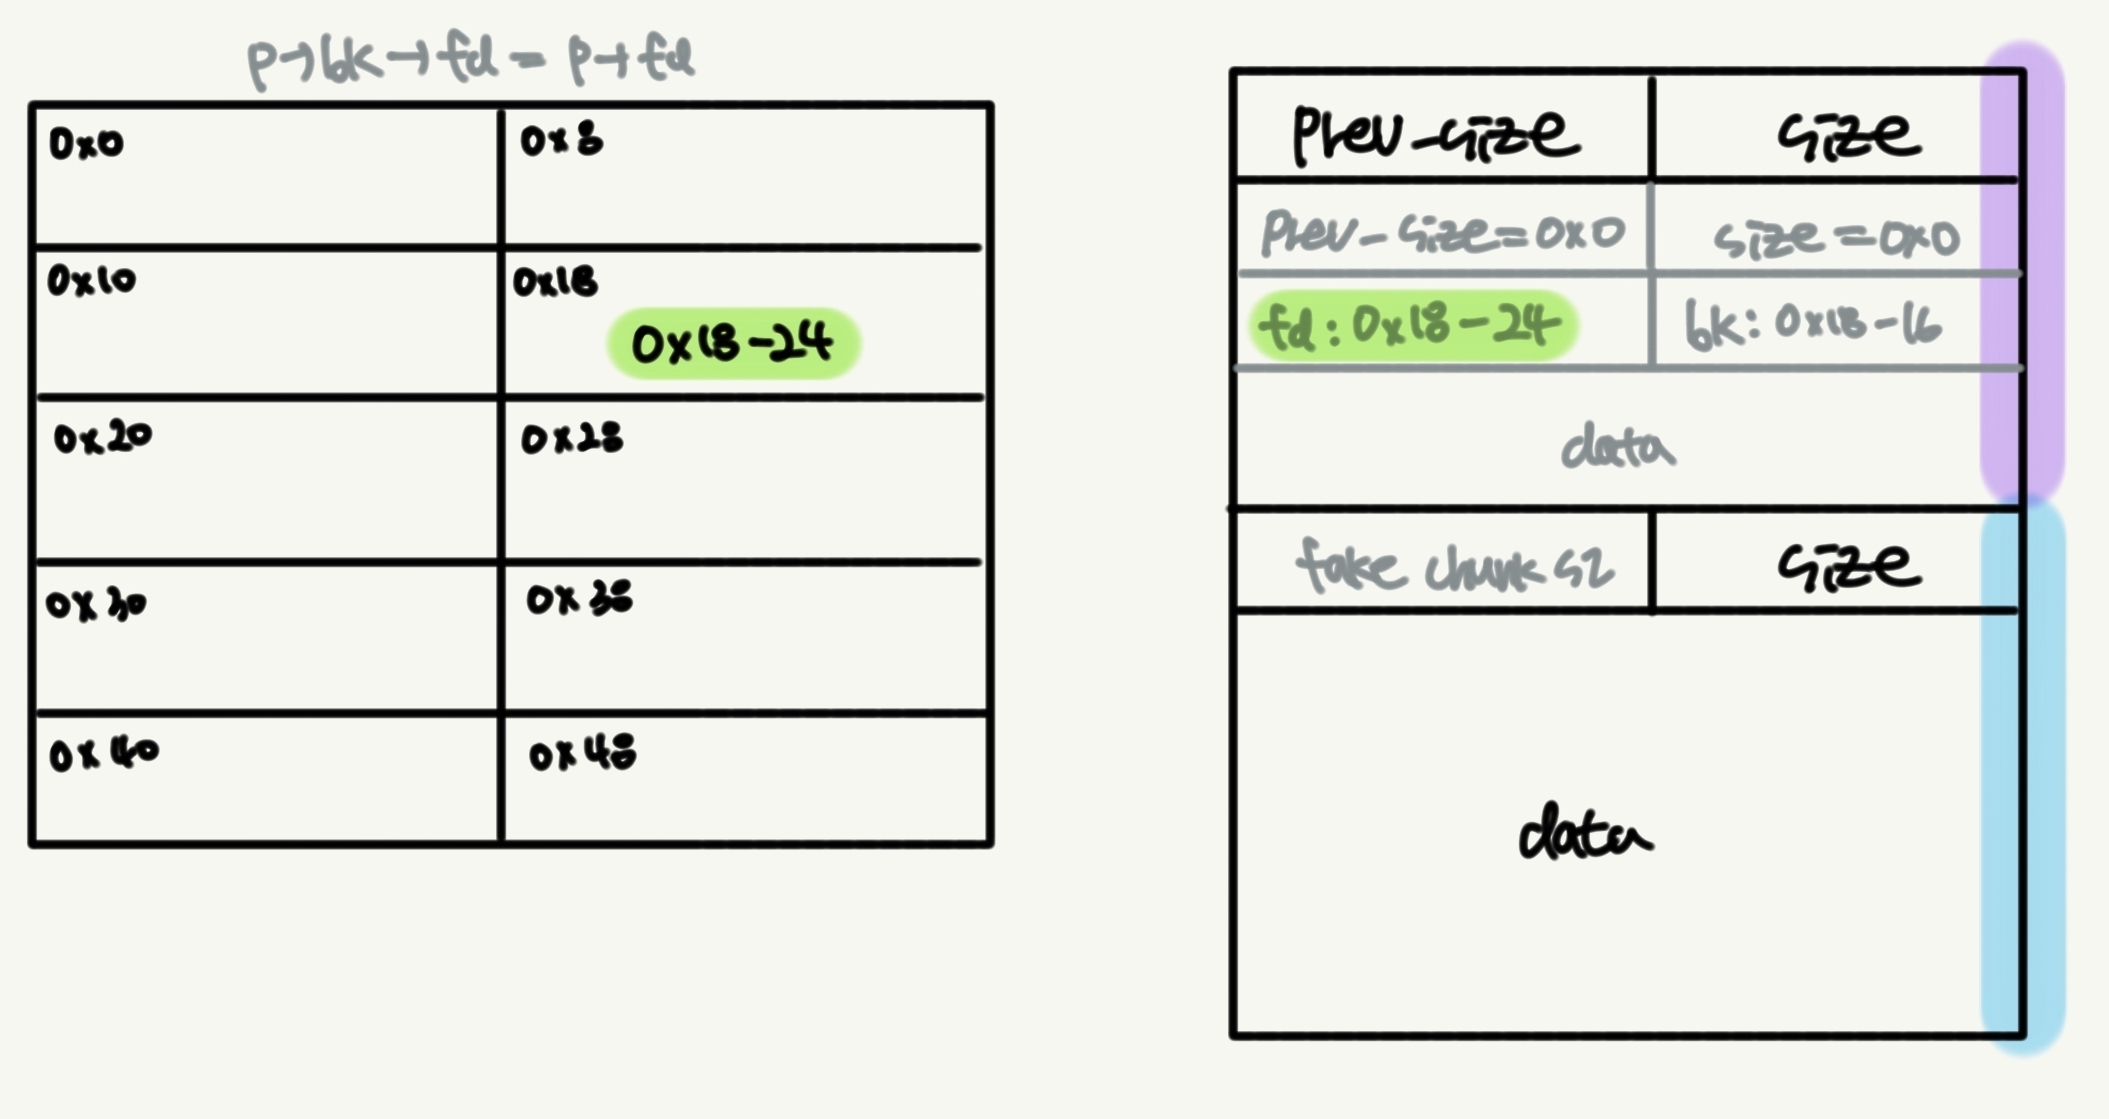 p→bk→fd = p→fd
0x0 0x8
0x10 0x18
0x18-24
0x20 0x28
0x30 0x38
0x40 0x48
Prev_size size
Prev_size=0x0 size=0x0
fd: 0x18-24 bk: 0x18-16
data
fake chunk sz size
data